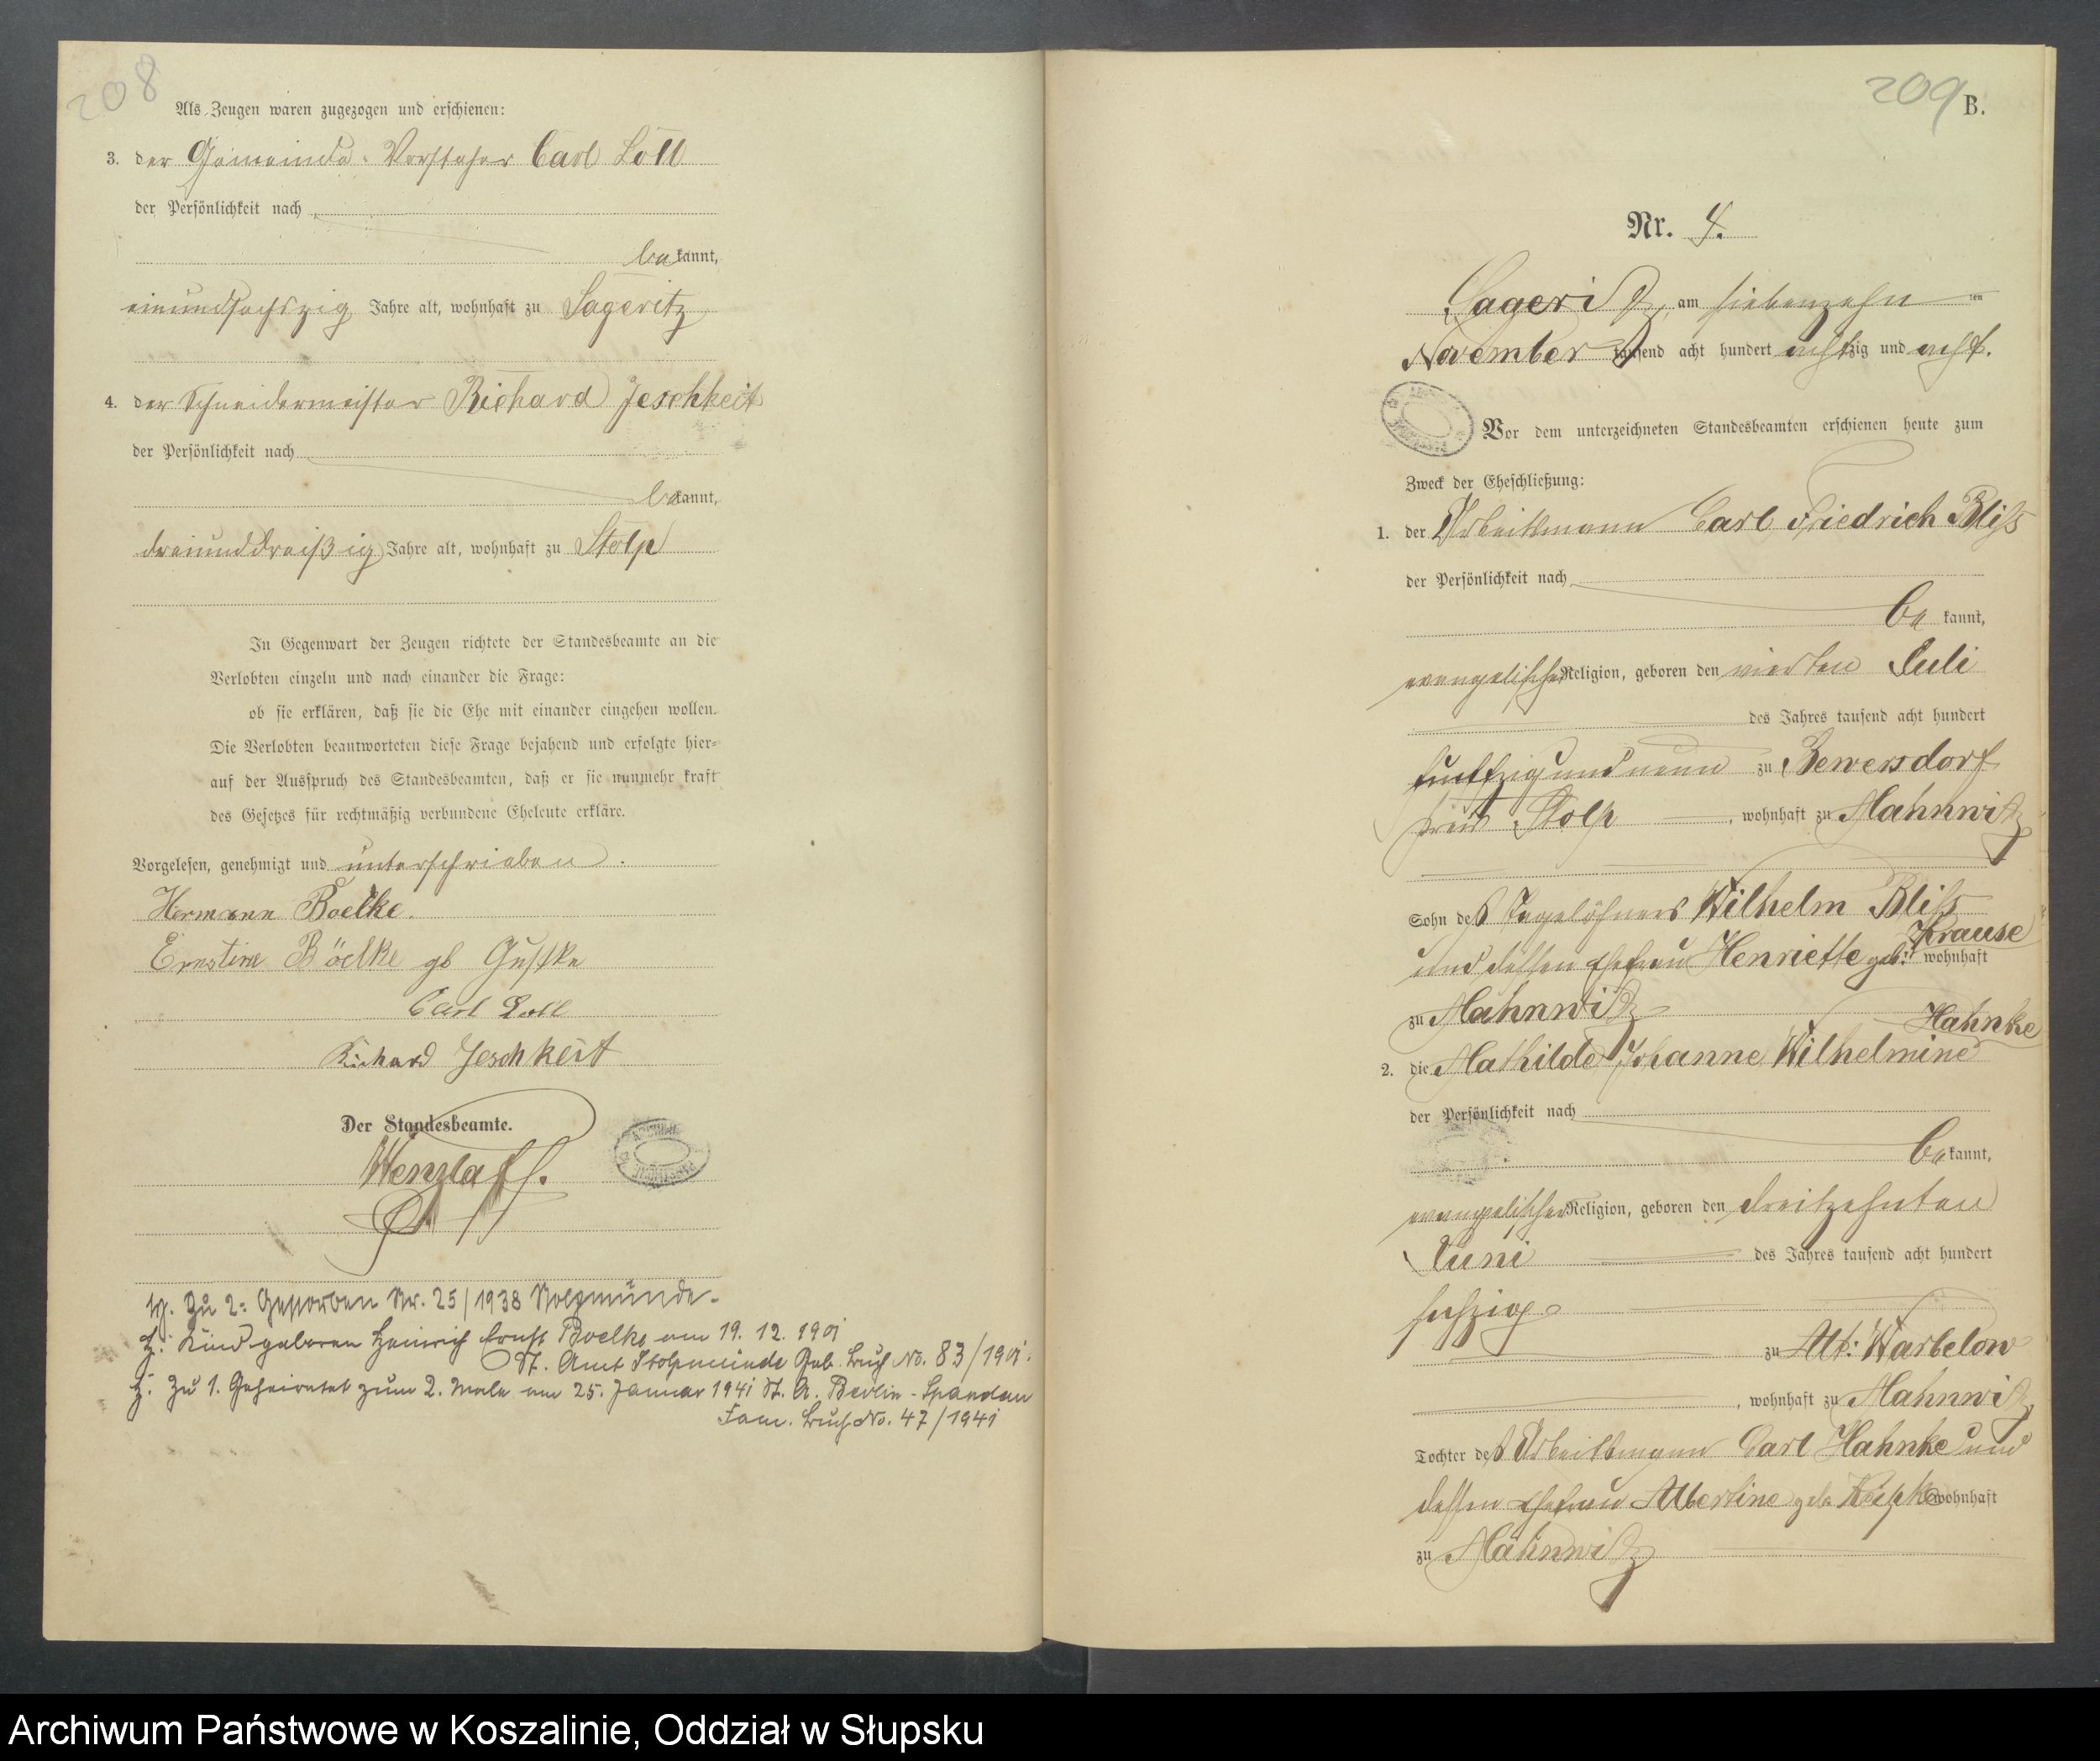 208
Als Zeugen waren zugezogen und erschienen:
3. der Gemeinde-Vorsteher Carl Löll
der Persönlichkeit nach
bekannt,
einundsechszig Jahre alt, wohnhaft zu Sageritz
4. der Schneidermeister Richard Jeschkeit
der Persönlichkeit nach
bekannt,
dreiunddreißig Jahre alt, wohnhaft zu Stolp
In Gegenwart der Zeugen richtete der Standesbeamte an die
Verlobten einzeln und nach einander die Frage:
ob sie erklären, daß sie die Ehe mit einander eingehen wollen.
Die Verlobten beantworteten diese Frage bejahend und erfolgte hier-
auf der Ausspruch des Standesbeamten, daß er sie nunmehr kraft
des Gesetzes für rechtmäßig verbundene Eheleute erkläre.
Vorgelesen, genehmigt und unterschrieben.
Hermann Boelke.
Ernstine Böelke gb Gustke
Carl Löll
Richard Jeschkeit
Der Standesbeamte.
Wenzlaff.
Zu 2: Gestorben Nr. 25/1938 Stolpmünde.
Z: Kind geboren Heinrich Ernst Boelke am 19. 12. 1901
St. Amt Stolpmünde Geb. Buch No. 83/1901.
Z: Zu 1. Geheiratet zum 2. Male am 25. Januar 1941 St. A. Berlin-Spandau
Fam. Buch No. 47/1941
209
B.
Nr. 4.
Sageritz, am siebenzehn ten
November tausend acht hundert achtzig und acht.
Vor dem unterzeichneten Standesbeamten erschienen heute zum
Zweck der Eheschließung:
1. der Arbeitsmann Carl Friedrich Bliß
der Persönlichkeit nach
bekannt,
evangelischer Religion, geboren den vierten Juli
des Jahres tausend acht hundert
fünfzig und neun zu Bewersdorf
Kreis Stolp, wohnhaft zu Mahnwitz
Sohn des Tagelöhners Wilhelm Bliß
und dessen Ehefrau Henriette geb: Krause wohnhaft
zu Mahnwitz
2. die Mathilde Johanne Wilhelmine Hahnke
der Persönlichkeit nach
bekannt,
evangelischer Religion, geboren den dreizehnten
Juni des Jahres tausend acht hundert
sechzig
zu Alt: Warbelow
, wohnhaft zu Mahnwitz
Tochter des Arbeitsmann Carl Hahnke und
dessen Ehefrau Albertine geb. wohnhaft
zu Mahnwitz
Archiwum Państwowe w Koszalinie, Oddział w Słupsku